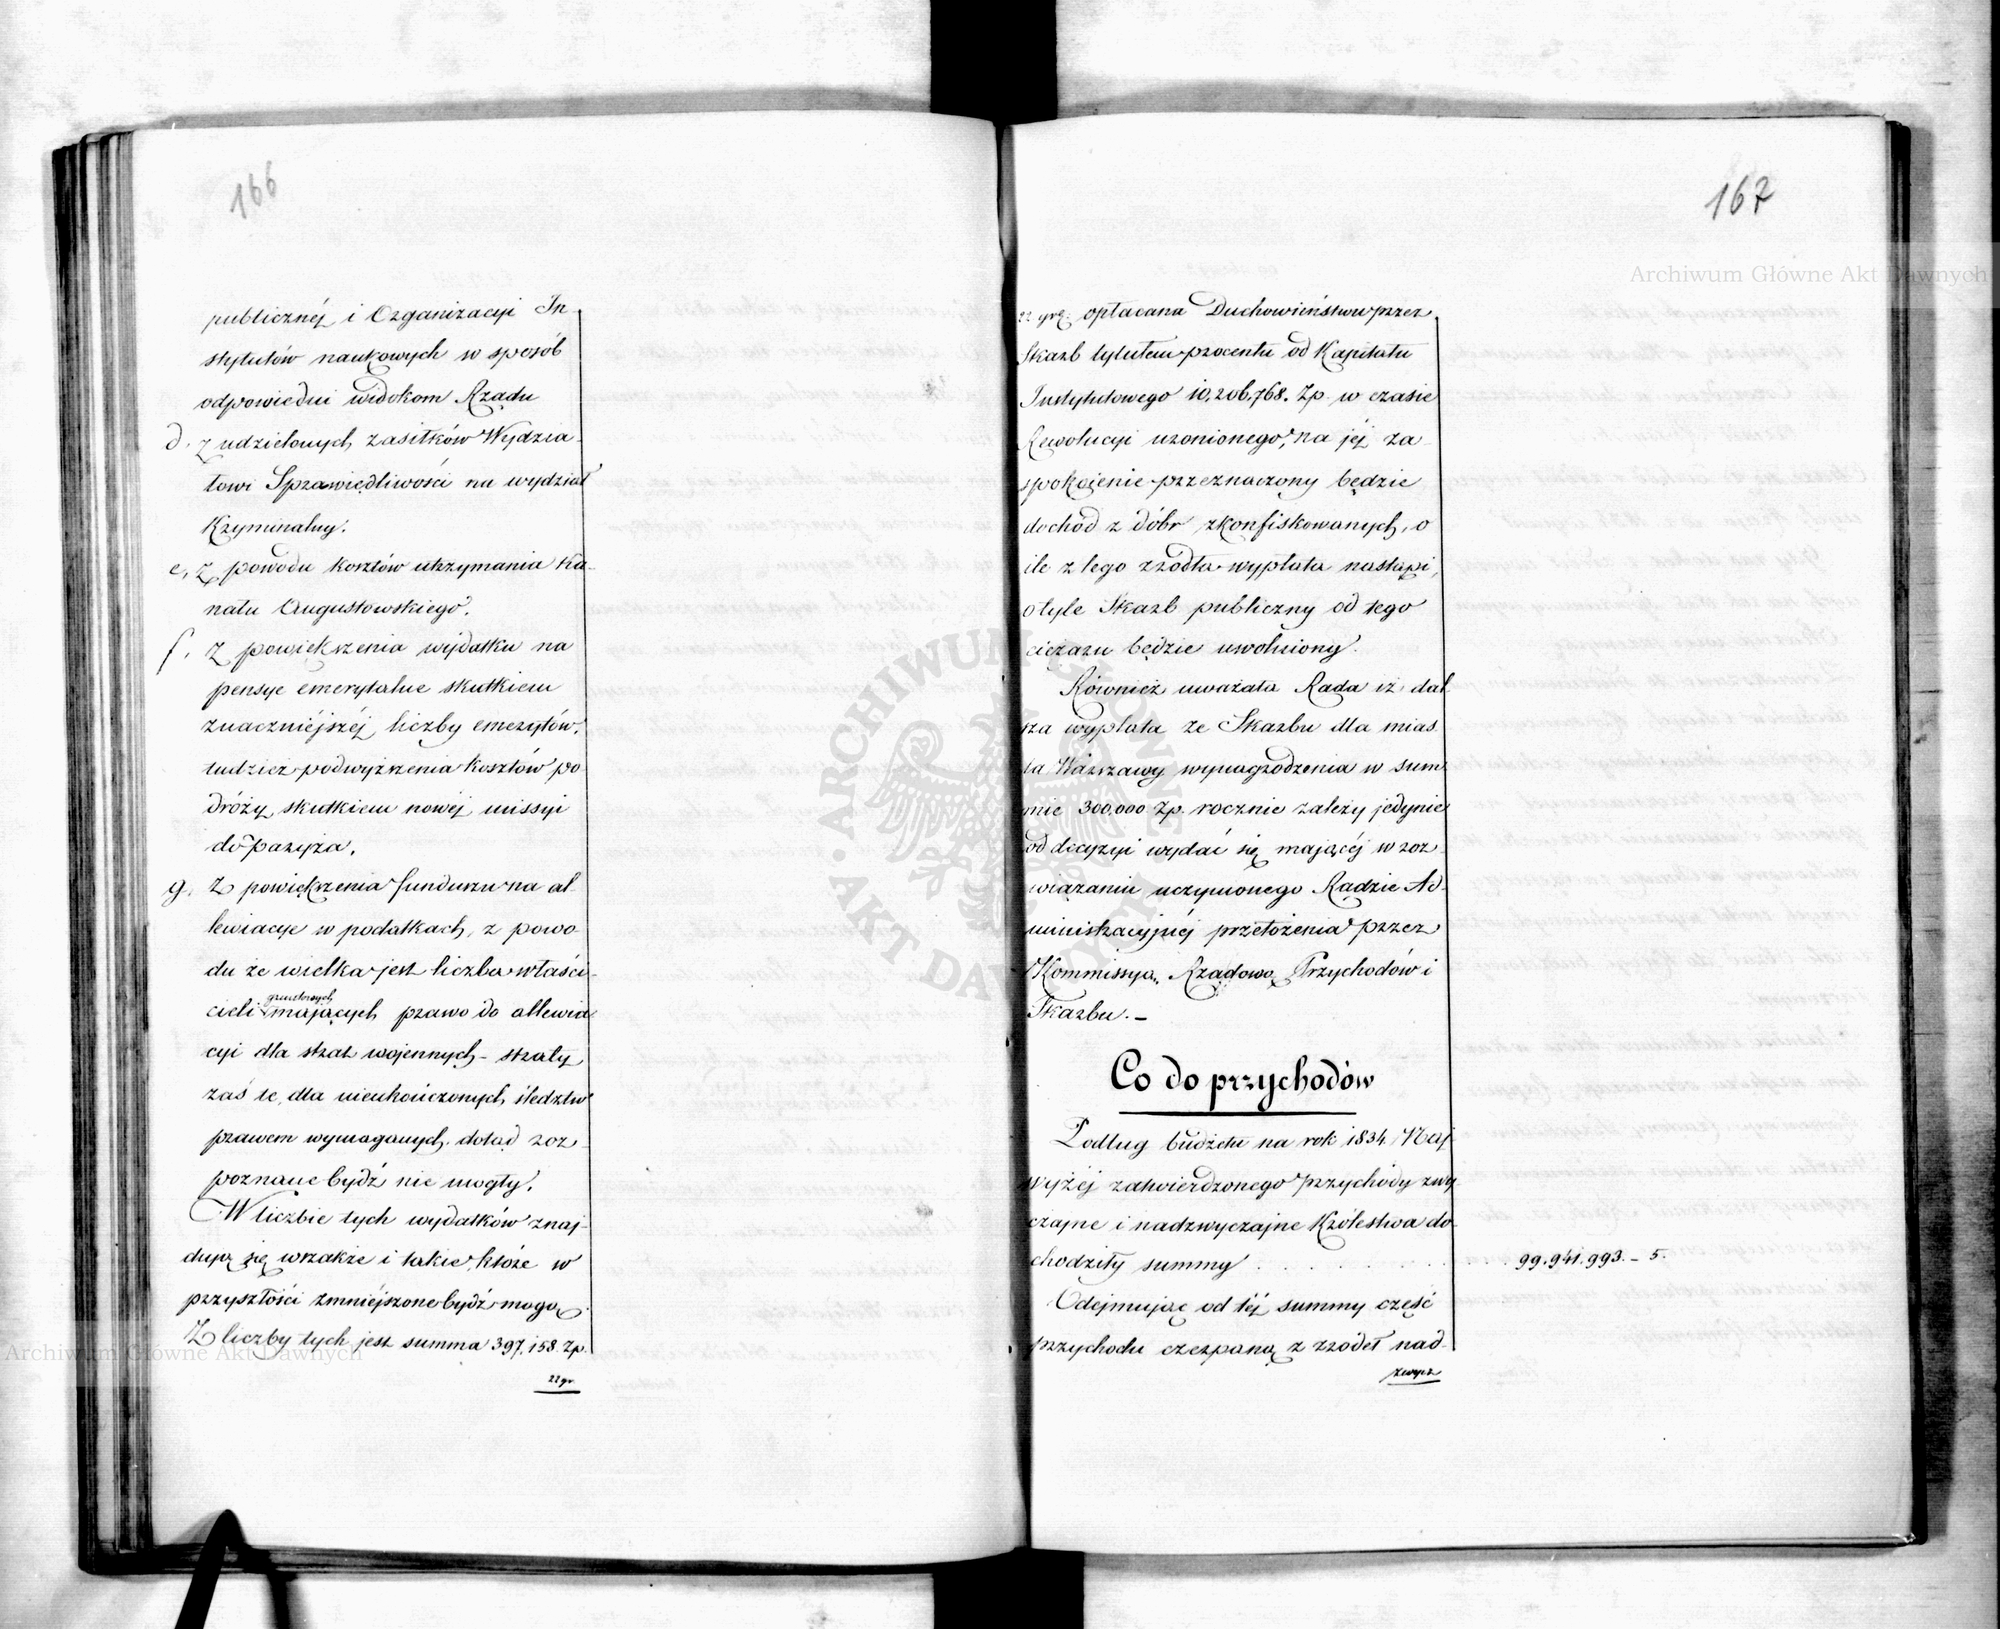 166
publicznéj i Organizacyi In-
stytutów naukowych w sposób
odpowiedni widokom Rządu
d. z udzielonych zasiłków Wydzia-
łowi Sprawiedliwości na wydział
Kryminalny.
e, z powodu kosztów utrzymania Ka-
nału Augustowskiego.
f. z powiększenia wydatku na
pensye emerytalne skutkiem
znaczniéjszéj liczby emerytów,
tudzież podwyższenia kosztów po-
dróży skutkiem nowéj missyi
do Paryża.
g. z powiększenia funduszu na al-
lewiacye w podatkach, z powo-
du że wielka jest liczba właści-
cieli gruntowych mających prawo do allewia
cyi dla strat wojennych - straty
zaś te, dla nieukończonych śledztw
prawem wymaganych dotąd roz-
poznane bydź nie mogły.
W liczbie tych wydatków znaj-
dują się wszakże i takie, które w
przyszłości zmniejszone bydź mogą.
Z liczby tych jest summa 397,158 Zp.
22 gr.
167
22 gr. opłacana Duchowieństwu przez
Skarb tytułem procentu od Kapitału
Instytutowego 10,206,768. Zp. w czasie
Rewolucyi uronionego, na jéj za-
spokojenie przeznaczony będzie
dochód z dóbr zkonfiskowanych, o
ile z tego źródła wypłata nastąpi,
otyle Skarb publiczny od tego
ciężaru będzie uwolniony.
Również uważała Rada iż dal
sza wypłata ze Skarbu dla mias
ta Warszawy wynagrodzenia w sum
mie 300,000 Zp. rocznie zależy jedynie
od decyzyi wydać się mającéj w roz-
wiązaniu uczynionego Radzie Ad-
ministracyjnéj przełożenia przez
Kommissyą Rządową Przychodów i
Skarbu. -
Co do przychodów
Podług budżetu na rok 1834 Naj
wyżéj zatwierdzonego przychody zwy
czajne i nadzwyczajne Królestwa do-
chodziły summy . . . . . . . . 99.941.993. - 5.
Odejmując od téj summy część
przychodu czerpaną z źródeł nad-
zwycz
Archiwum Główne Akt Dawnych
Archiwum Główne Akt Dawnych
ARCHIWUM GŁÓWNE · AKT DAWNYCH ·